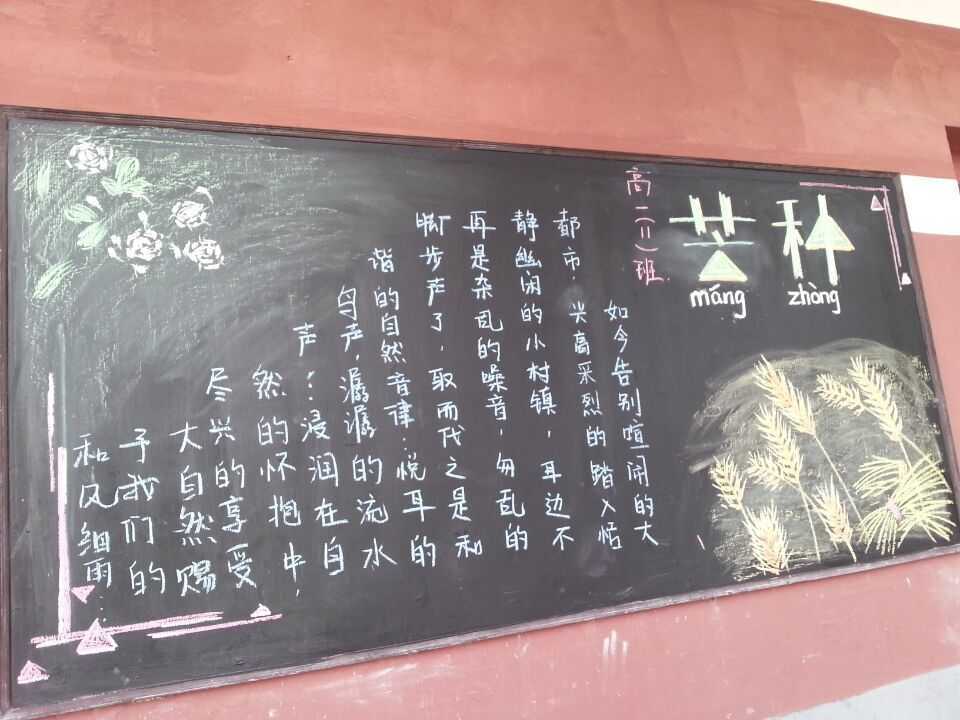 芒种
máng zhòng
高二(二)班
如今告别喧闹的大
都市.兴高采烈的踏入恬
静幽闲的小村镇,耳边不
再是杂乱的噪音,匆乱的
脚步声了,取而代之是和
谐的自然音律:悦耳的
鸟声,潺潺的流水
声…浸润在自
然的怀抱中,
尽兴的享受
大自然赐
予我们的
和风细雨…